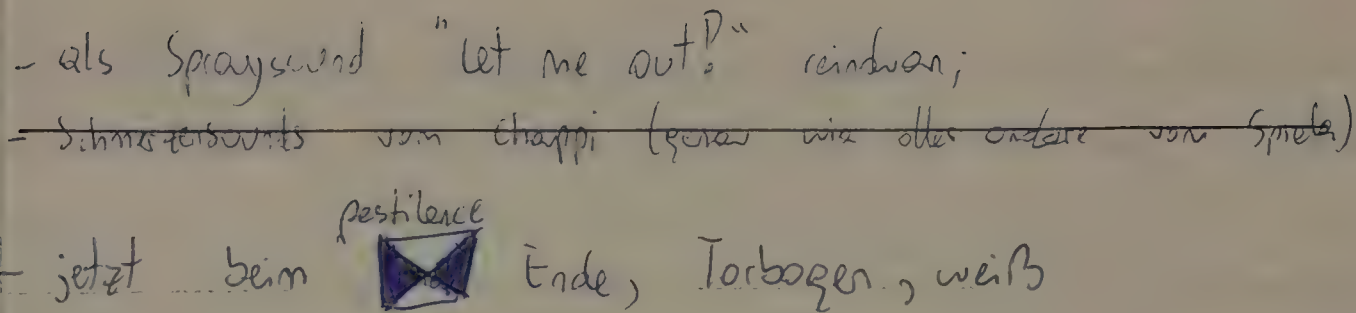 - als Spraysound "Let me out!" reindran;
- Schmerzsounds vom Chappi (genau wie alles andere vom Spieler)
pestilence
- jetzt beim Ende, Torbogen, weiß